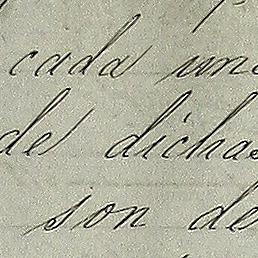 cada una
de dichas
son de